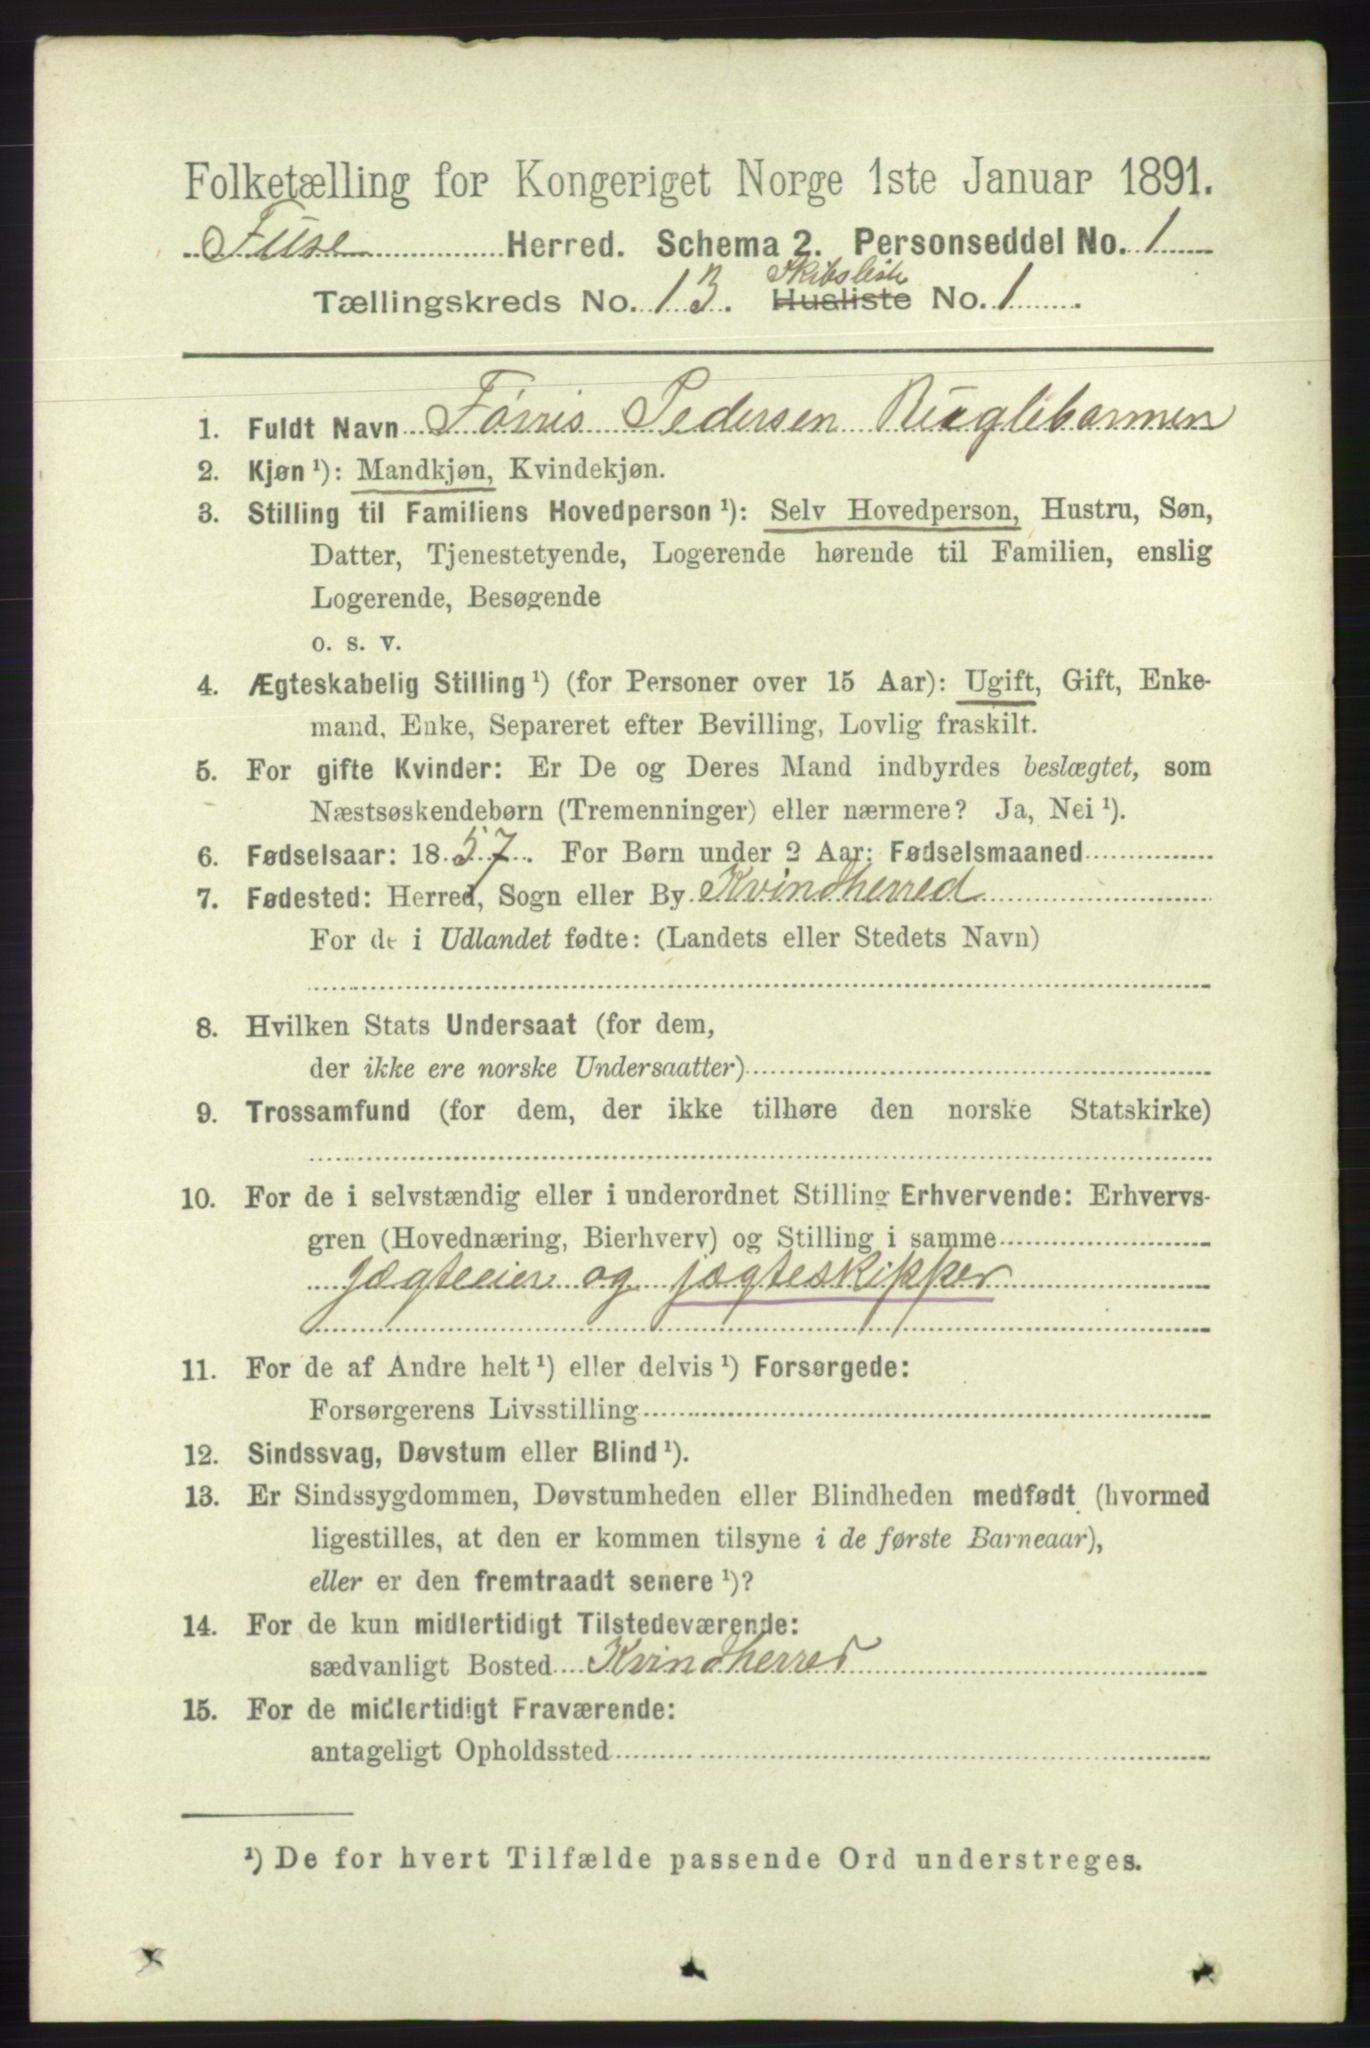 Folketælling for Kongeriget Norge 1ste Januar 1891.
Fuse Herred. Schema 2. Personseddel No. 1
Skibsliste
Tællingskreds No. 13. Husliste No. 1.
1. Fuldt Navn Tørris Pedersen
2. Kjøn ¹): Mandkjøn, Kvindekjøn.
3. Stilling til Familiens Hovedperson ¹): Selv Hovedperson, Hustru, Søn,
Datter, Tjenestetyende, Logerende hørende til Familien, enslig
Logerende, Besøgende
o. s. v.
4. Ægteskabelig Stilling ¹) (for Personer over 15 Aar): Ugift, Gift, Enke-
mand, Enke, Separeret efter Bevilling, Lovlig fraskilt.
5. For gifte Kvinder: Er De og Deres Mand indbyrdes beslægtet, som
Næstsøskendebørn (Tremenninger) eller nærmere? Ja, Nei ¹).
6. Fødselsaar: 1857. For Børn under 2 Aar: Fødselsmaaned
7. Fødested: Herred, Sogn eller By Kvindherred
For de i Udlandet fødte: (Landets eller Stedets Navn)
8. Hvilken Stats Undersaat (for dem,
der ikke ere norske Undersaatter)
9. Trossamfund (for dem, der ikke tilhøre den norske Statskirke)
10. For de i selvstændig eller i underordnet Stilling Erhvervende: Erhvervs-
gren (Hovednæring, Bierhverv) og Stilling i samme
jægteeier og jægteskipper
11. For de af Andre helt ¹) eller delvis ¹) Forsørgede:
Forsørgerens Livsstilling
12. Sindssvag, Døvstum eller Blind ¹).
13. Er Sindssygdommen, Døvstumheden eller Blindheden medfødt (hvormed
ligestilles, at den er kommen tilsyne i de første Barneaar),
eller er den fremtraadt senere ¹)?
14. For de kun midlertidigt Tilstedeværende:
sædvanligt Bosted Kvindherred
15. For de midlertidigt Fraværende:
antageligt Opholdssted
¹) De for hvert Tilfælde passende Ord understreges.